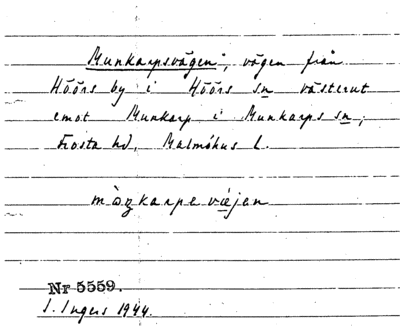 "Munkarpsvägen", vägen från
Höörs by i Höörs sn västerut
emot Munkarp i Munkarps sn,
Frosta hd, Malmöhus l.
Nr 5559.
I. Ingers 1944.